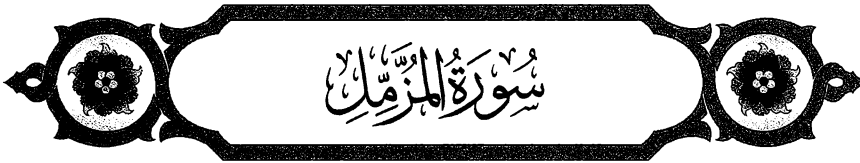 سُورَةُ المُزَّمِّلِ